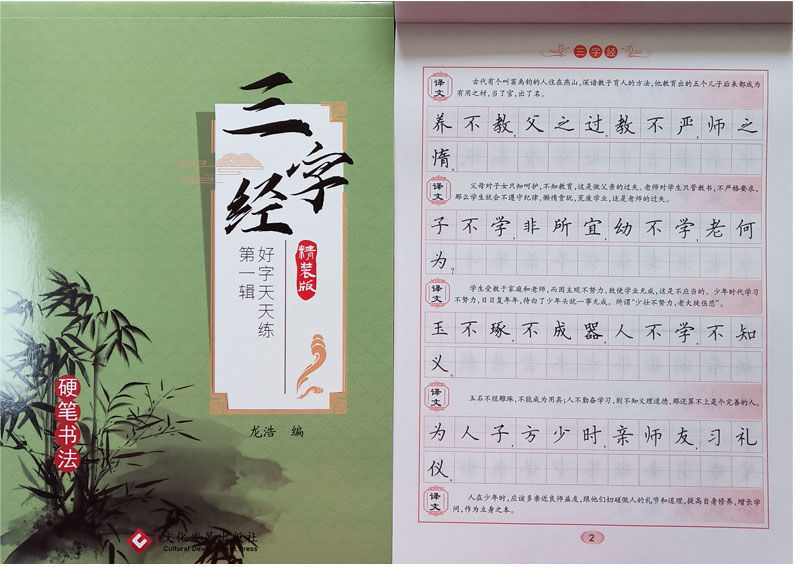 三字经
精装版
好字天天练
第一辑
龙浩 编
硬笔书法
文化发展出版社
Cultural Development Press
三字经
译文
古代有个叫窦禹钧的人住在燕山,深谙教子育人的方法,他教育出的五个儿子后来都成为
有用之材,当了官,出了名。
养不教,父之过,教不严,师之
惰。
译文
父母对子女只知呵护,不知教育,这是做父亲的过失。老师对学生只管教书,不严格要求,
那么学生就会不遵守纪律,懒惰贪玩,荒废学业,这是老师的过失。
子不学,非所宜,幼不学,老何
为?
译文
学生受教于家庭和老师,而因主观不努力,致使学业无成,这是不应当的。少年时代学习
不努力,日日复年年,待白了少年头就一事无成。所谓“少壮不努力,老大徒伤悲”。
玉不琢,不成器,人不学,不知
义。
译文
玉石不经雕琢,不能成为用具;人不勤奋学习,则不知义理道德,那还算不上是个完善的人。
为人子,方少时,亲师友,习礼
仪。
译文
人在少年时,应该多亲近良师益友,跟他们切磋做人的礼节和道理,提高自身修养,增长学
问,作为立身之本。
2